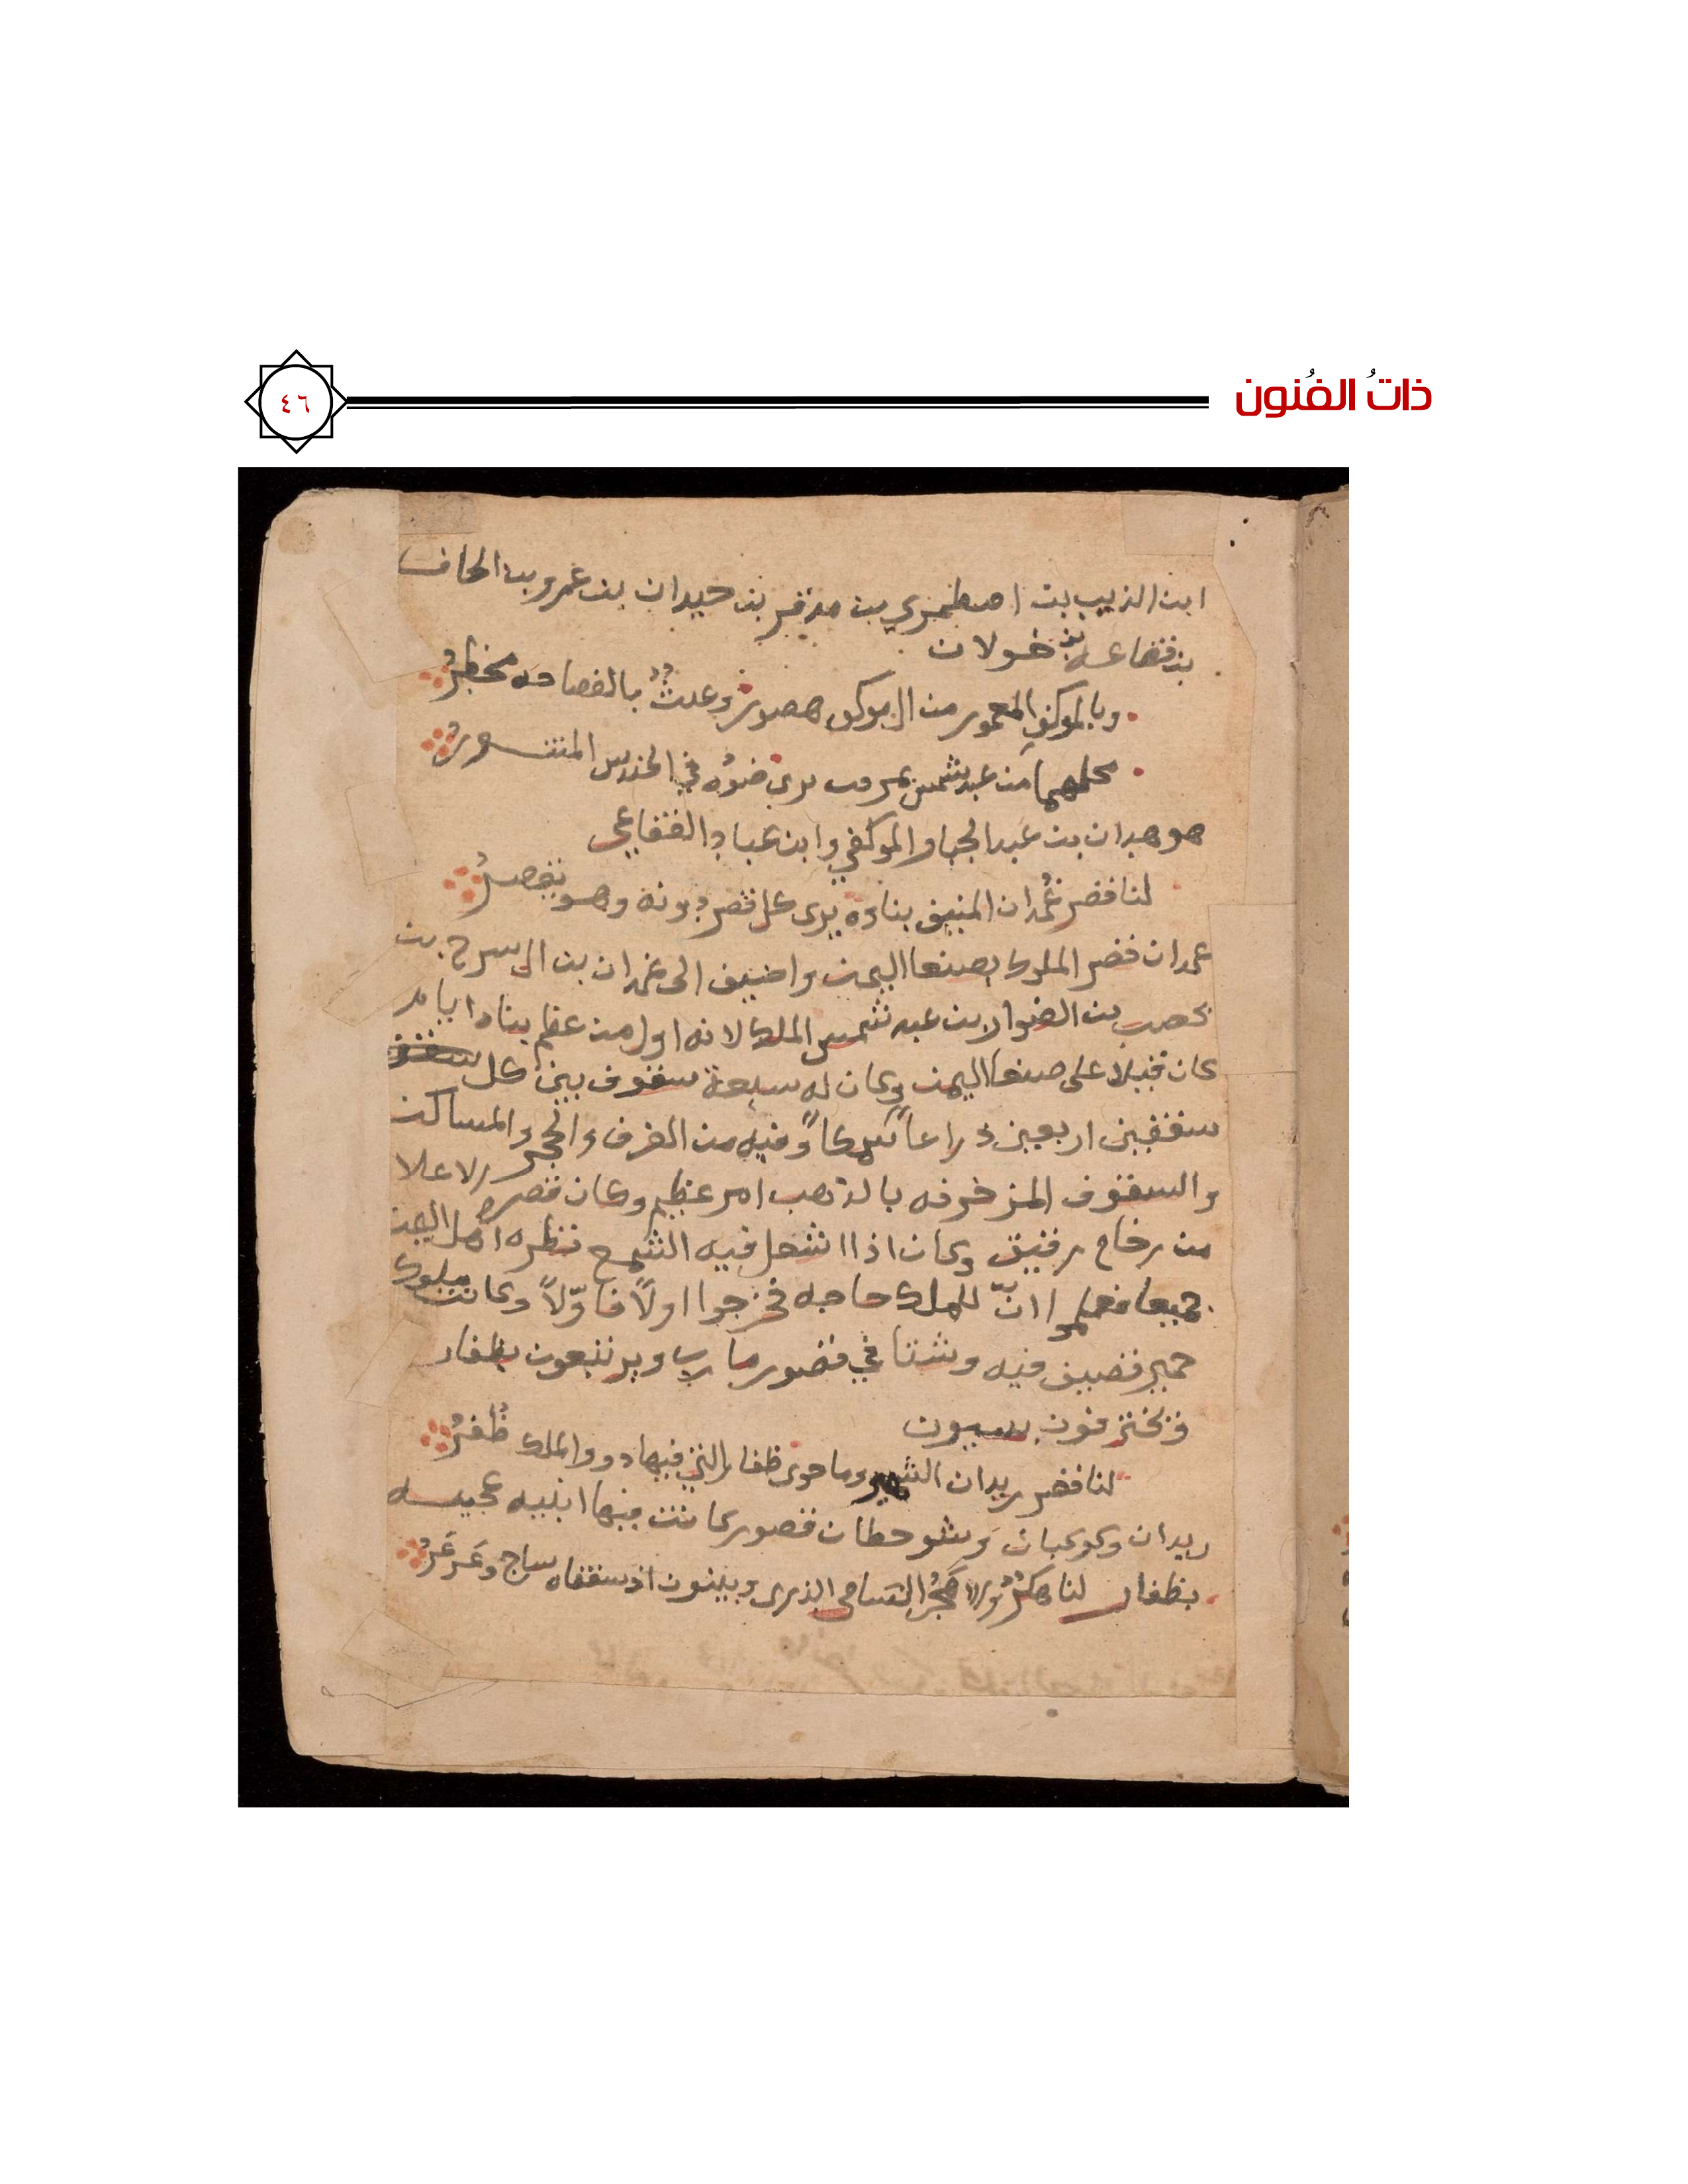 ذاتُ الفُنون
٤٦
ابن الذيب بن اصطمري بن مدقر بن حيدان بن عمرو بن الحاف
بن قضاعه بن خولان
وبالموكف المعمور من ال موكف هصور وعدث بالفصاحه مخطرُ
محلهما من عبد شمس بمروب يرى ضوه في الحندس المتسور
هو هدان بن عبد الجبار الموكفي وابن عباد الققاعي
لنا قصر غُمدان المنيف بناوه يرى كل قصر دونه وهو يقصرُ
غمدان قصر الملوك بصنعا اليمن واضيف الى غمدان بن ال سرح بن
يحصب بن الصوار بن عبد شمس الملك لانه اول من عظم بناه ايام
كان قيلا على صنعا اليمن وكان له سبعة سقوف بين كل
سقفين اربعين ذراعاً سمكاً وفيه من الغرف والحجر والمساكن
والسقوف المزخرفه بالذهب امر عظيم وكان قصره الاعلا
من رخام رقيق وكان اذا اشعل فيه الشمع نظره اهل اليمن
جميعا فعلموا انّ للملك حاجه فخرجوا اولاً فاوّلاً وكانت ملوك
حمير تصيف فيه وشتا في قصور مارب ويرتبعون بظفار
وتخترفون بسيون
لنا قصر ريدان الشهير وما حوى ظفار التي فيها ذوو الملك ظُفرُ
ريدان وكوكبان وشوحطان قصور كانت فيها ابنيه عجيبه
بظفار لنا هكرٌ والحجرُ السامي الذرى وبينون اذ سقفاه ساج وعَرعَرُ